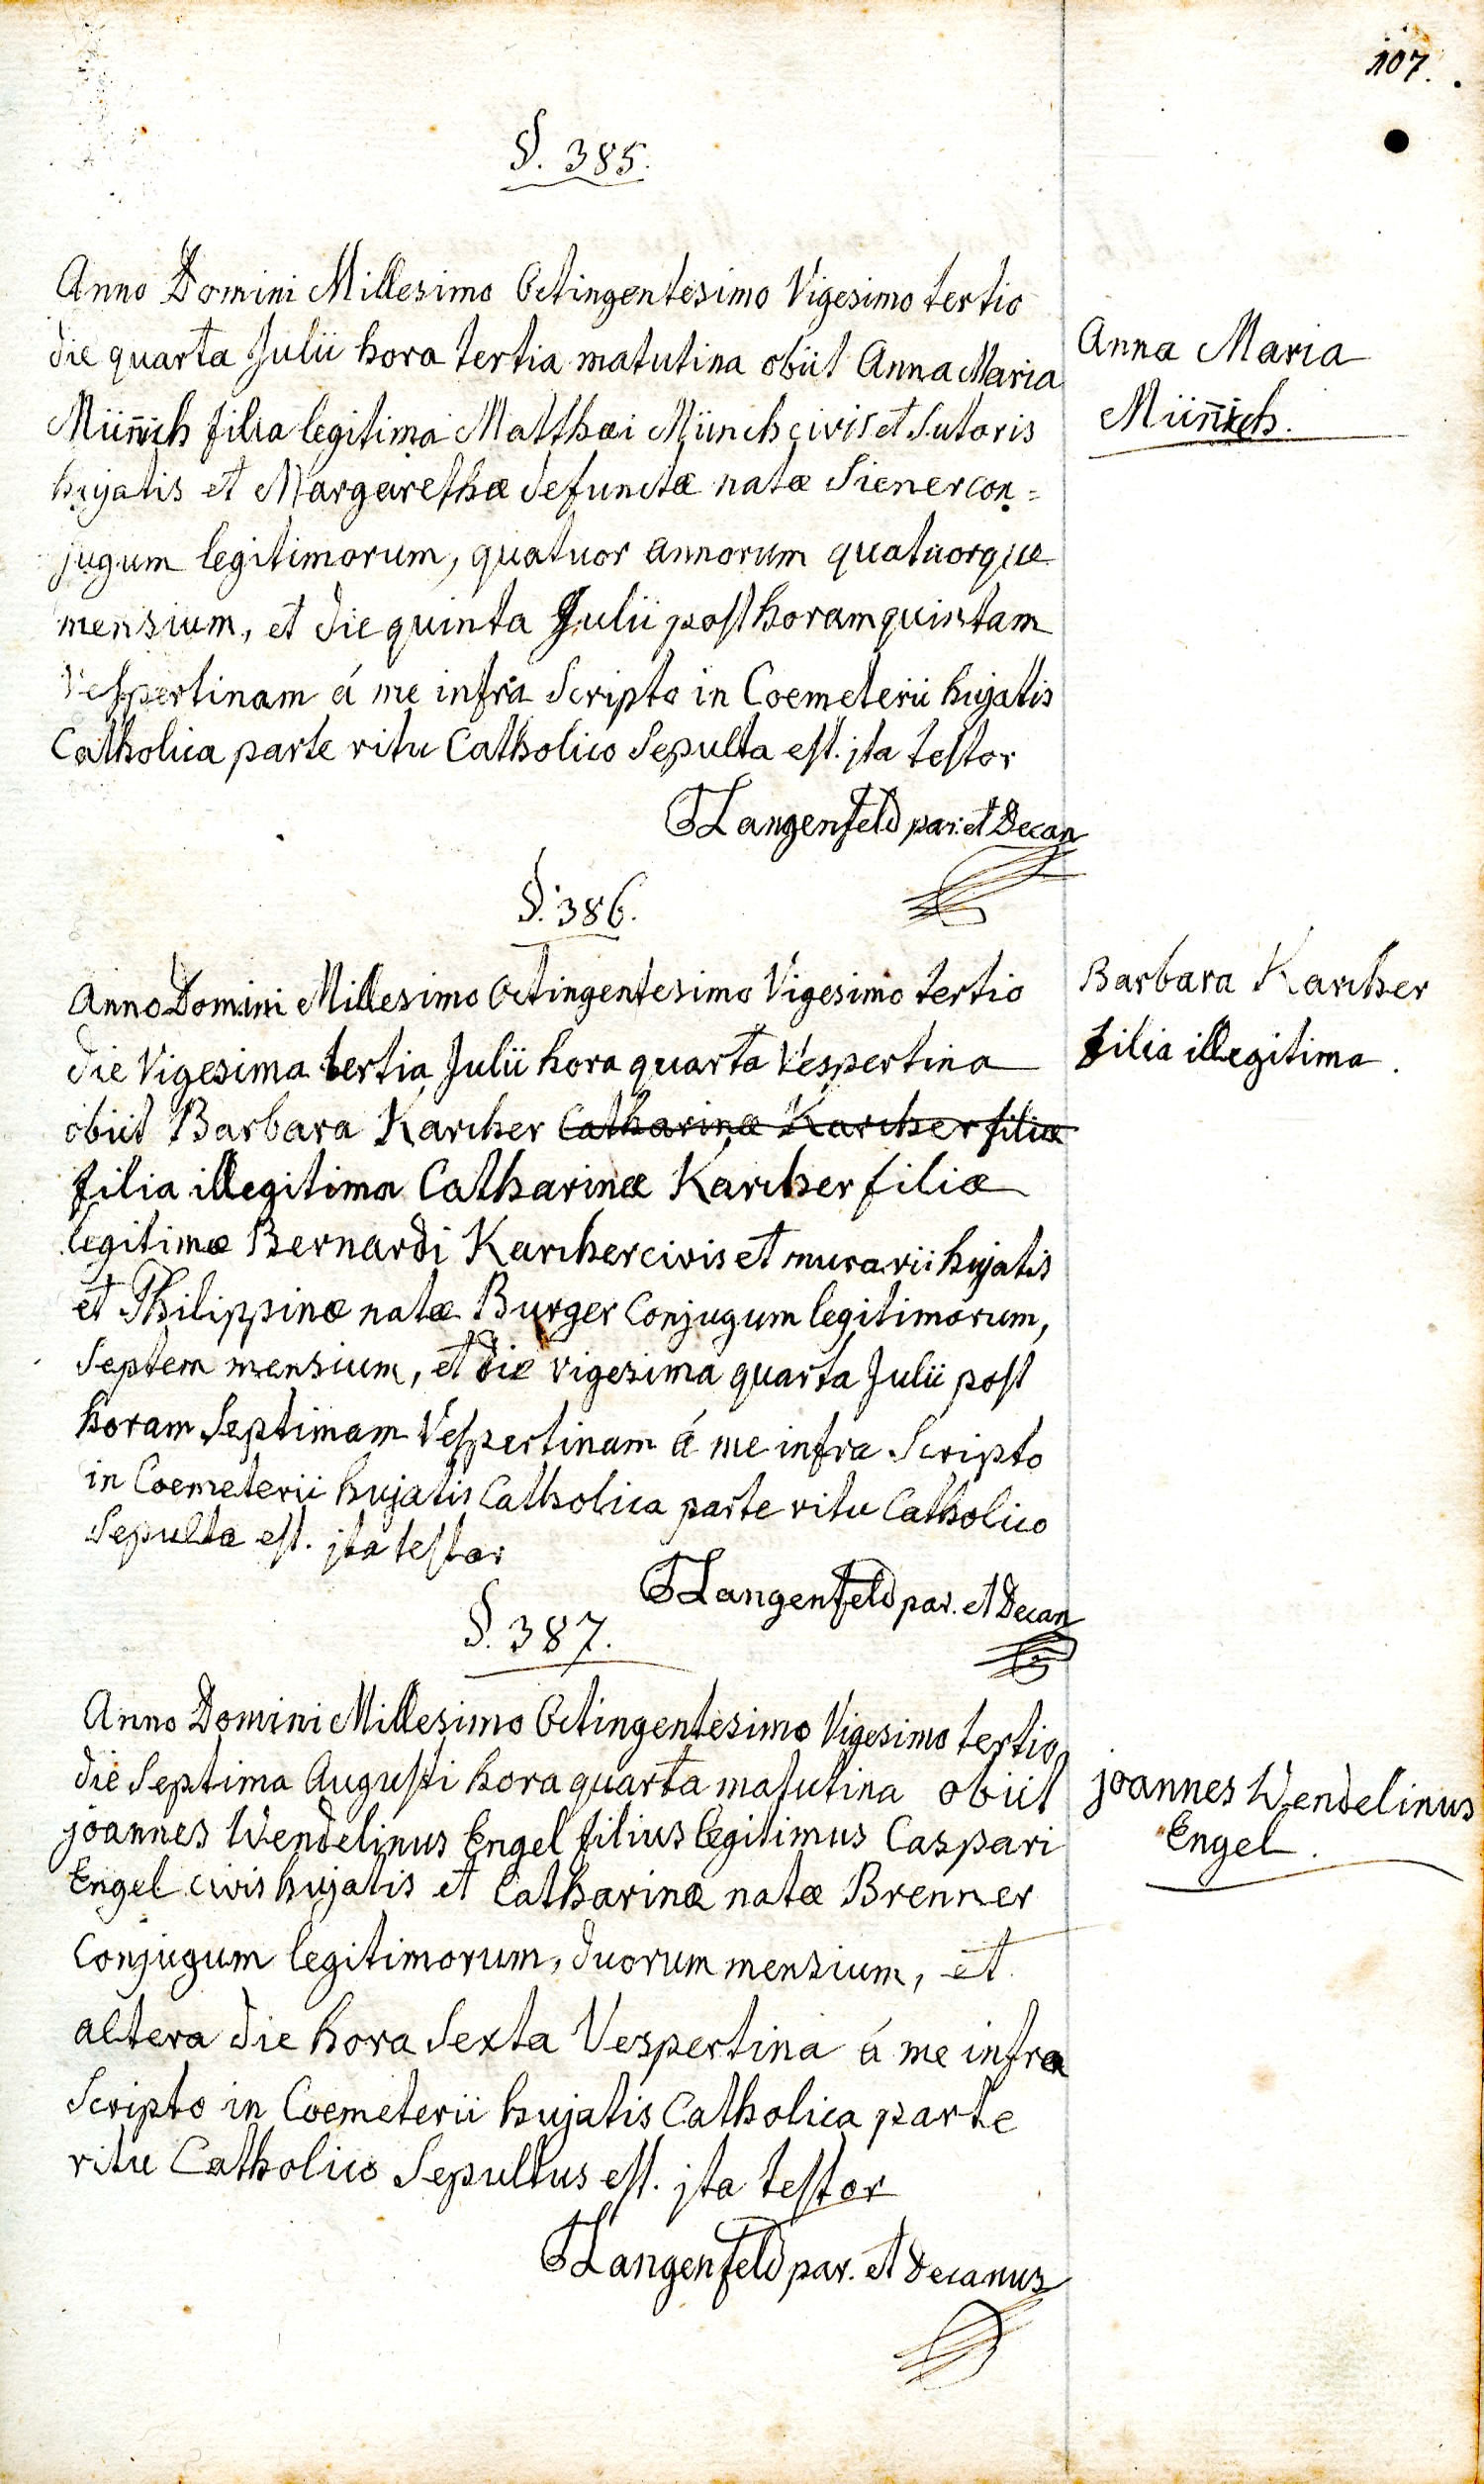 107.
§. 385.
Anno Domini Millesimo Octingentesimo Vigesimo tertio
die quarta Julii hora tertia matutina obiit Anna Maria
Anna Maria
Münich.
Münich filia legitima Matthæi Münch civis et Sutoris
hujatis et Margarethæ defunctæ natæ Siener con=
jugum legitimorum, quatuor annorum quatuorque
mensium, et die quinta Julii post horam quintam
Vespertinam á me infra Scripto in Coemeterii hujatis
Catholica parte ritu Catholico Sepulta est. jta testor
Langenfeld par. et Decan
§. 386.
Anno Domini Millesimo Octingentesimo Vigesimo tertio
Barbara Karcher
filia illegitima.
die Vigesima tertia Julii hora quarta Vespertina
obiit Barbara Karcher Catharinæ Karcher filiæ
filia illegitima Catharinæ Karcher filiæ
legitimæ Bernardi Karcher civis et murarii hujatis
et Philippinæ natæ Burger Conjugum legitimorum,
Septem mensium, et die vigesima quarta Julii post
horam Septimam Vespertinam á me infra Scripto
in Coemeterii hujatis Catholica parte ritu Catholico
Sepulta est. jta testor
Langenfeld par. et Decan
§. 387.
Anno Domini Millesimo Octingentesimo Vigesimo tertio
die Septima Augusti hora quarta matutina obiit
joannes Wendelinus
Engel.
joannes Wendelinus Engel filius legitimus Caspari
Engel civis hujatis et Catharinæ natæ Brenner
Conjugum legitimorum, duorum mensium, et
altera die hora Sexta Vespertina á me infra
Scripto in Coemeterii hujatis Catholica parte
ritu Catholico Sepultus est. jta testor
Langenfeld par. et Decanus